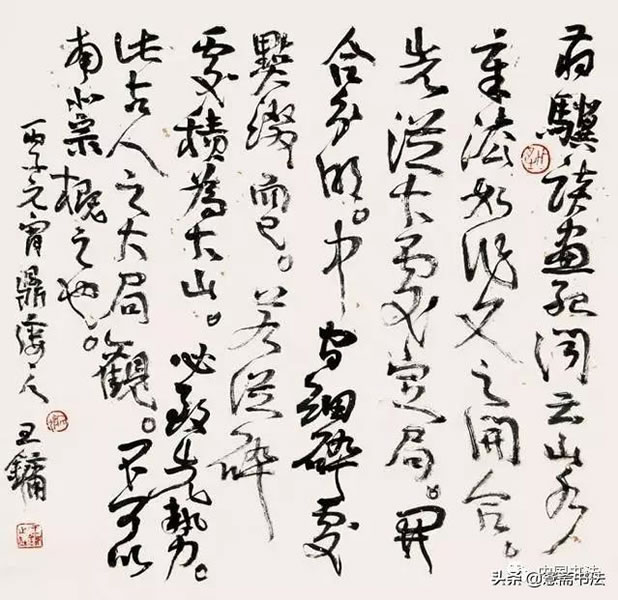 蔣驥讀畫紀聞云山水
章法如作文之開合。
先從大處定局。開
合分明。中間細碎處
點綴而已。若從碎
處積為大山。必致失勢。
此古人之大局觀。不可以
南北宗概之也。
丙子元宵鼎廔主人 王鏞
中国书法
头条 @慧斋书法